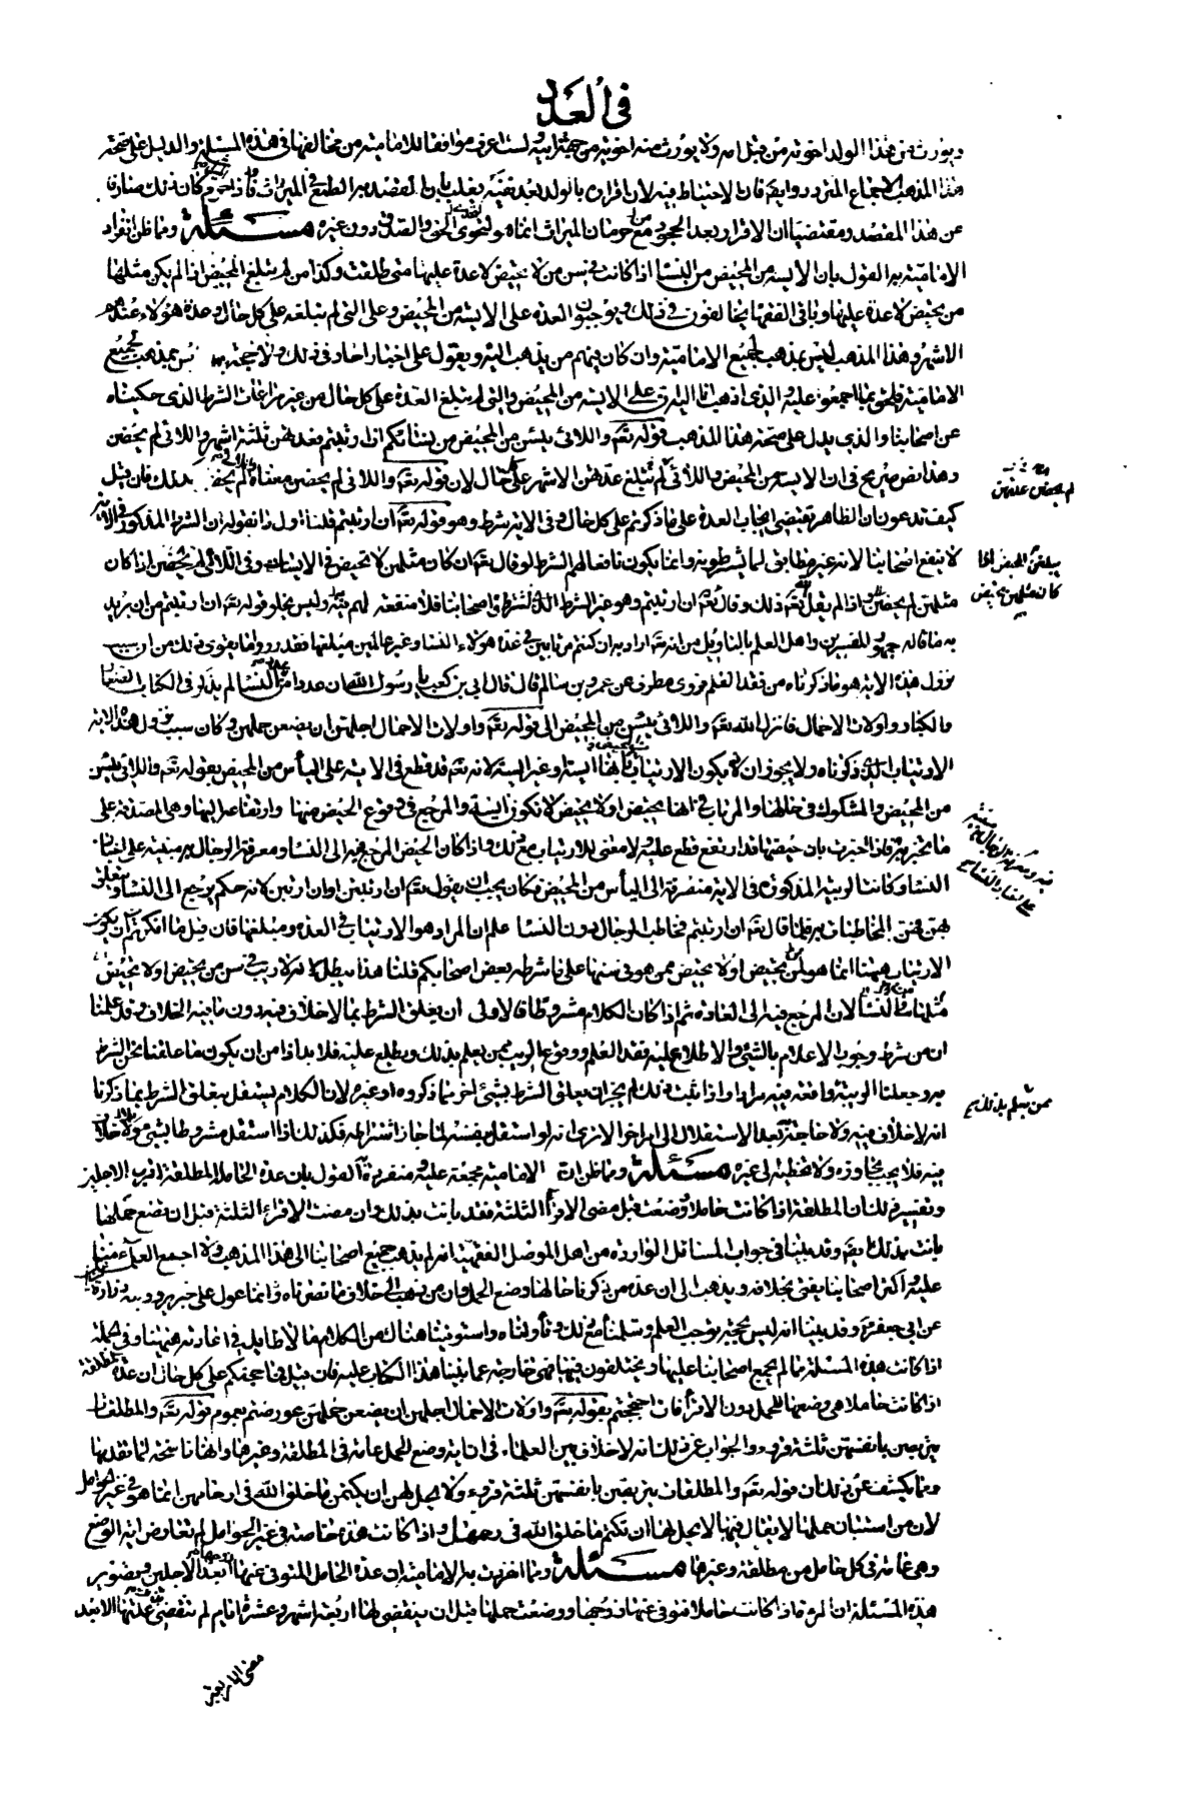 في العدد
ويورث من هذا الولد اخوته من قبل امه ولا يورث منه اخوته من جهة ابيه ولست اعرف موافقا للامامية من مخالفيها في هذه المسئلة والدليل على صحة
هذا المذهب الاجماع المتردد وايضا فان الاحتياط فيه لان اقراره بالولد بعد نفيه يغلب بان القصد به الطمع في الميراث فاذا حرم كان ذلك صارفا
عن هذا المقصد ومقتضيا ان الاقرار بعد الجحود مع حرمان الميراث انما هو لتحري الحق والصدق دون غيره مسئلة ومما ظن انفراد
الامامية به القول بان الايسة من المحيض من النساء اذا كانت في سن من لا تحيض لا عدة عليها متى طلقت وكذا من لم تبلغ المحيض اذا لم يكن مثلها
من تحيض لا عدة عليها وباقي الفقهاء يخالفون في ذلك ويوجبون العدة على الايسة من المحيض وعلى التي لم تبلغه على كل حال وعدة هؤلاء عندهم
الاشهر وهذا المذهب ليس بمذهب لجميع الامامية وان كان فيهم من يذهب اليه ويعول على اخبار احاد في ذلك ولا حجة فيها ليس بمذهب لجميع
الامامية فيلحق بما اجمعوا عليه والذي اذهب انا اليه ان على الايسة من المحيض والتي لم تبلغ العدة على كل حال من غير مراعات الشرط الذي حكيناه
عن اصحابنا والذي يدل على صحة هذا المذهب قوله تعم واللائي يئسن من المحيض من نسائكم ان ارتبتم فعدتهن ثلثة اشهر واللائي لم يحضن
وهذا نص صريح في ان الايسة من المحيض واللائي لم تبلغ عدتهن الاشهر على كل حال لان قوله تعم واللائي لم يحضن معناه لم يحضن كذلك فان قيل
كيف تدعون ان الظاهر يقتضي ايجاب العدة على ما ذكرتم على كل حال وفي الاية شرط وهو قوله تعم ان ارتبتم قلنا اول ما نقوله ان الشرط المذكور في الاية
لا ينفع اصحابنا لانه غير مطابق لما يشرطونه وانما يكون نافعا لهم الشرط لو قال تعم ان كان مثلهن لا تحيض في الايسات وفي اللائي لم يحضن اذا كان
مثلهن لم يحضن واذا لم يقل تعم ذلك وقال تعم ان ارتبتم وهو غير الشرط الذي شرطه اصحابنا فلا منفعة لهم فيه وليس يخلو قوله تعم ان ارتبتم من ان يريد
به ما قاله جمهور المفسرين واهل العلم بالتاويل من انه تعم اراد به ان كنتم مرتابين في عدة هؤلاء النساء وغير عالمين مبلغها فقد رووا ما يقوي ذلك من ان سبب
نزول هذه الاية هو ما ذكرناه من فقد العلم فروى مطرف عن عمرو بن سالم قال قال ابي بن كعب يا رسول الله ان عددا من النساء لم يذكر في الكتاب الصغار
والكبار واولات الاحمال فانزل الله تعم واللائي يئسن من المحيض الى قوله تعم واولات الاحمال اجلهن ان يضعن حملهن فكان سبب نزول هذه الاية
الارتياب الذي ذكرناه ولا يجوز ان يكون الارتياب بانها ايسة او غير ايسة لانه تعم قد قطع في الاية على اليأس من المحيض بقوله تعم واللائي يئسن
من المحيض والمشكوك في حالها والمرتاب في انها تحيض او لا تحيض لا تكون ايسة والمرجع في وقوع الحيض منها وارتفاعه اليها وهي المصدقة على
ما تخبر به فاذا اخبرت بان حيضها قد ارتفع قطع عليه ولا معنى للارتياب مع ذلك واذا كان الحيض المرجع فيه الى النساء ومعرفة الرجال به مبنية على اخبار
النساء وكانت الريبة المذكورة في الاية منصرفة الى اليأس من المحيض فكان يجب ان يقول تعم ان ارتبتن او ان ارتبن لانه حكم يرجع الى النساء ويتعلق
بهن فهن المخاطبات به فلما قال تعم ان ارتبتم فخاطب الرجال دون النساء علم ان المراد هو الارتياب في العدة ومبلغها فان قيل ما انكرتم ان يكون
الارتياب ههنا انما هو بمن تحيض او لا تحيض ممن هو في سنها على ما شرطه بعض اصحابكم قلنا هذا يبطل لانه لا ريب في سن من تحيض او لا تحيض
مثلها من النساء لان المرجع فيه الى العادة ثم اذا كان الكلام مشروطا فالاولى ان يعلق الشرط بما لا خلاف فيه دون ما فيه الخلاف وقد علمنا
ان من شرط وجوب الاعلام بالشيء والاطلاع عليه فقد العلم ووقوع الريب ممن يعلم بذلك ويطلع عليه فلا بد اذا من ان يكون ما علقنا نحن الشرط
به وجعلنا الريبة واقعة فيه مرادا واذا ثبت ذلك لم يجز ان يعلق الشرط بشيء اخر مما ذكروه او غيره لان الكلام يستقل بتعلق الشرط بما ذكرنا
انه لا خلاف فيه ولا حاجة به بعد الاستقلال الى امر اخر الا ترى انه لو استقل بنفسه لما جاز اشتراطه فكذلك اذا استقل مشروطا بشيء لا خلاف
فيه فلا يجب تجاوزه ولا تخطيه الى غيره مسئلة ومما ظن ان الامامية مجمعة عليه ومنفردة به القول بان عدة الحامل المطلقة اقرب الاجلين
وتفسير ذلك ان المطلقة اذا كانت حاملا ووضعت قبل مضي الاقراء الثلثة فقد بانت بذلك وان مضت الاقراء الثلثة قبل ان تضع حملها
بانت بذلك ايضا وقد بينا في جواب المسائل الواردة من اهل الموصل الفقهية انه لم يذهب جميع اصحابنا الى هذا المذهب ولا اجمع العلماء منا
عليه واكثر اصحابنا يفتي بخلافه ويذهب الى ان عدة من ذكرنا حالها وضع الحمل وان من ذهب الى خلاف ما نصرناه انما عول على خبر يرويه زرارة
عن ابي جعفر ع وقد بينا انه ليس بحجة توجب العلم وسلمناه مع ذلك وتأولناه واستوفينا هناك من الكلام ما لا طايل في اعادته ههنا وفي الجملة
اذا كانت هذه المسئلة مما لم يجمع اصحابنا عليها ويختلفون فيها فهي خارجة عما بنينا هذا الكتاب عليه فان قيل فما حجتكم على كل حال ان عدة المطلقة
اذا كانت حاملا هي وضعها للحمل دون الاقراء فان احتججتم بقوله تعم واولات الاحمال اجلهن ان يضعن حملهن عورضتم بعموم قوله تعم والمطلقات
يتربصن بانفسهن ثلثة قروء والجواب عن ذلك انه لا خلاف بين العلماء في ان اية وضع الحمل عامة في المطلقة وغيرها وانها ناسخة لما تقدمها
ومما يكشف عن ذلك ان قوله تعم والمطلقات يتربصن بانفسهن ثلثة قروء ولا يحل لهن ان يكتمن ما خلق الله في ارحامهن انما هو في غير الحوامل
لان من استبان حملها لا يقال فيها لا يحل لها ان تكتم ما خلق الله في رحمها واذا كانت هذه خاصة في غير الحوامل لم تعارض اية الوضع
وهي عامة في كل حامل من مطلقة وغيرها مسئلة ومما انفردت به الامامية ان عدة الحامل المتوفى عنها زوجها ابعد الاجلين وتصوير
هذه المسئلة ان المرءة اذا كانت حاملا فتوفي عنها زوجها ووضعت حملها قبل ان ينقضي لها اربعة اشهر وعشرة ايام لم تنقضي عدتها الا بعد
لم يحضن عدتهن
يبلغن المحيض اذا
كان مثلهن تحيض
فيه ومعرفة الرجال به مبنية
على اخبار النساء
ممن يعلم بذلك
مضى الاربعة